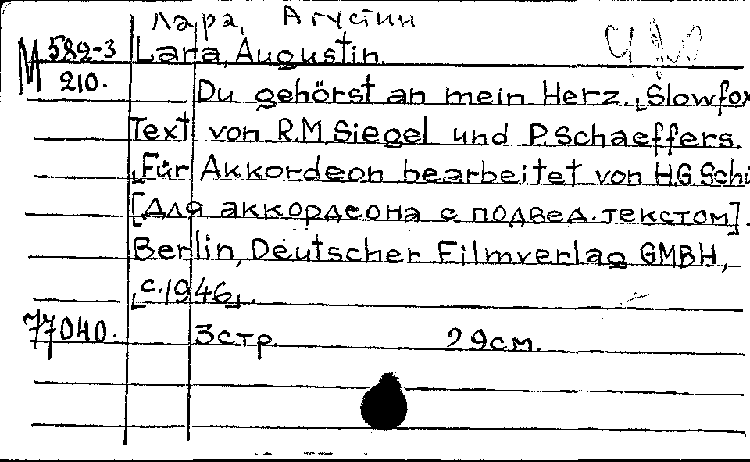 Лара, Агустин
М 582-3 Lara, Augustin.
210. Du gehörst an mein Herz. „Slowfox
Text von R.M. Siegel und P. Schaeffers.
„Für Akkordeon bearbeitet von H.G. Schü
[Для аккордеона с подвед. текстом].
Berlin, Deutscher Filmverlag GMBH,
[c. 1946].
77040. 3 стр. 29 см.